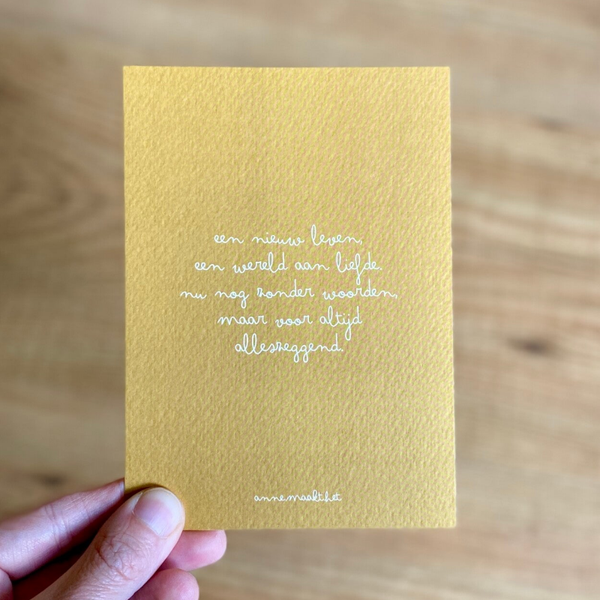 een nieuw leven,
een wereld aan liefde.
nu nog zonder woorden,
maar voor altijd
alleszeggend.
annemaakthet